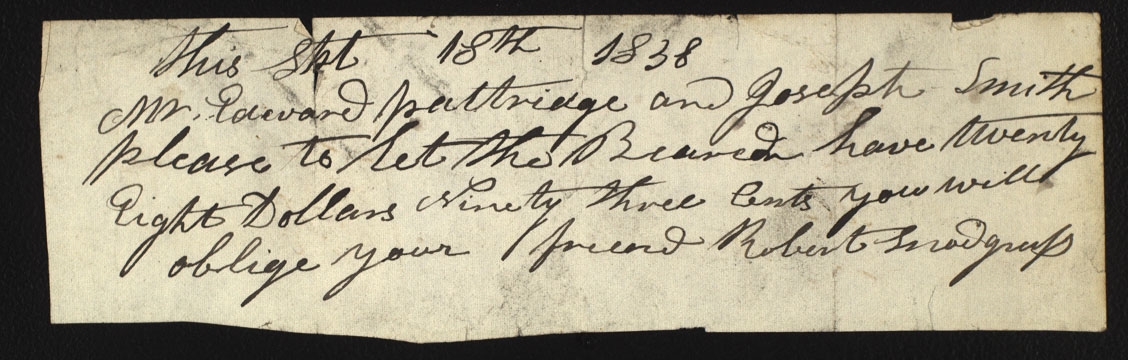 this Spt 18th 1838
Mr. Edward pattridge and Joseph Smith
please to let the Bearer have twenty
Eight Dollars Ninety three Cents you will
oblige your friend Robert Snodgrass